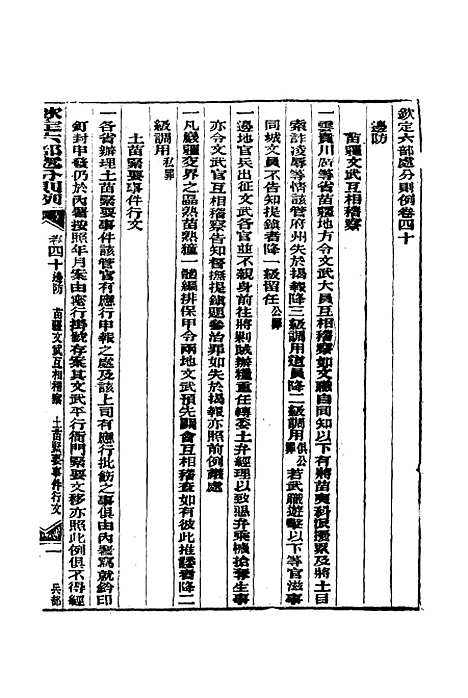 欽定六部處分則例卷四十
邊防
苗疆文武互相稽察
一雲貴川廣等省苗疆地方令文武大員互相稽察如文職自同知以下有將苗夷科派擾累及將土目
索詐凌辱等情該管府州失於揭報降三級調用道員降二級調用俱公罪若武職遊擊以下等官滋事
同城文員不告知提鎮者降一級留任公罪
一邊地官兵出征文武各官並不親身前往將剿賊辦糧重任轉委土弁經理以致土弁乘機搶奪生事
亦令文武官互相稽察告知督撫提鎮題參治罪如失於揭報亦照前例議處
一凡黔粵交界之區熟苗熟獞一體編排保甲令兩地文武預先關會互相稽查如有彼此推諉者降二
級調用私罪
土苗緊要事件行文
一各省辦理土苗緊要事件該管官有應行申報之處及該上司有應行批飭之事俱由內署寫就鈐印
釘封申發仍於內署按照年月案由應行掛號存案其文武平行衙門緊要文移亦照此例俱不得經
欽定六部處分則例 卷四十邊防 苗疆文武互相稽察 土苗緊要事件行文 一 兵部